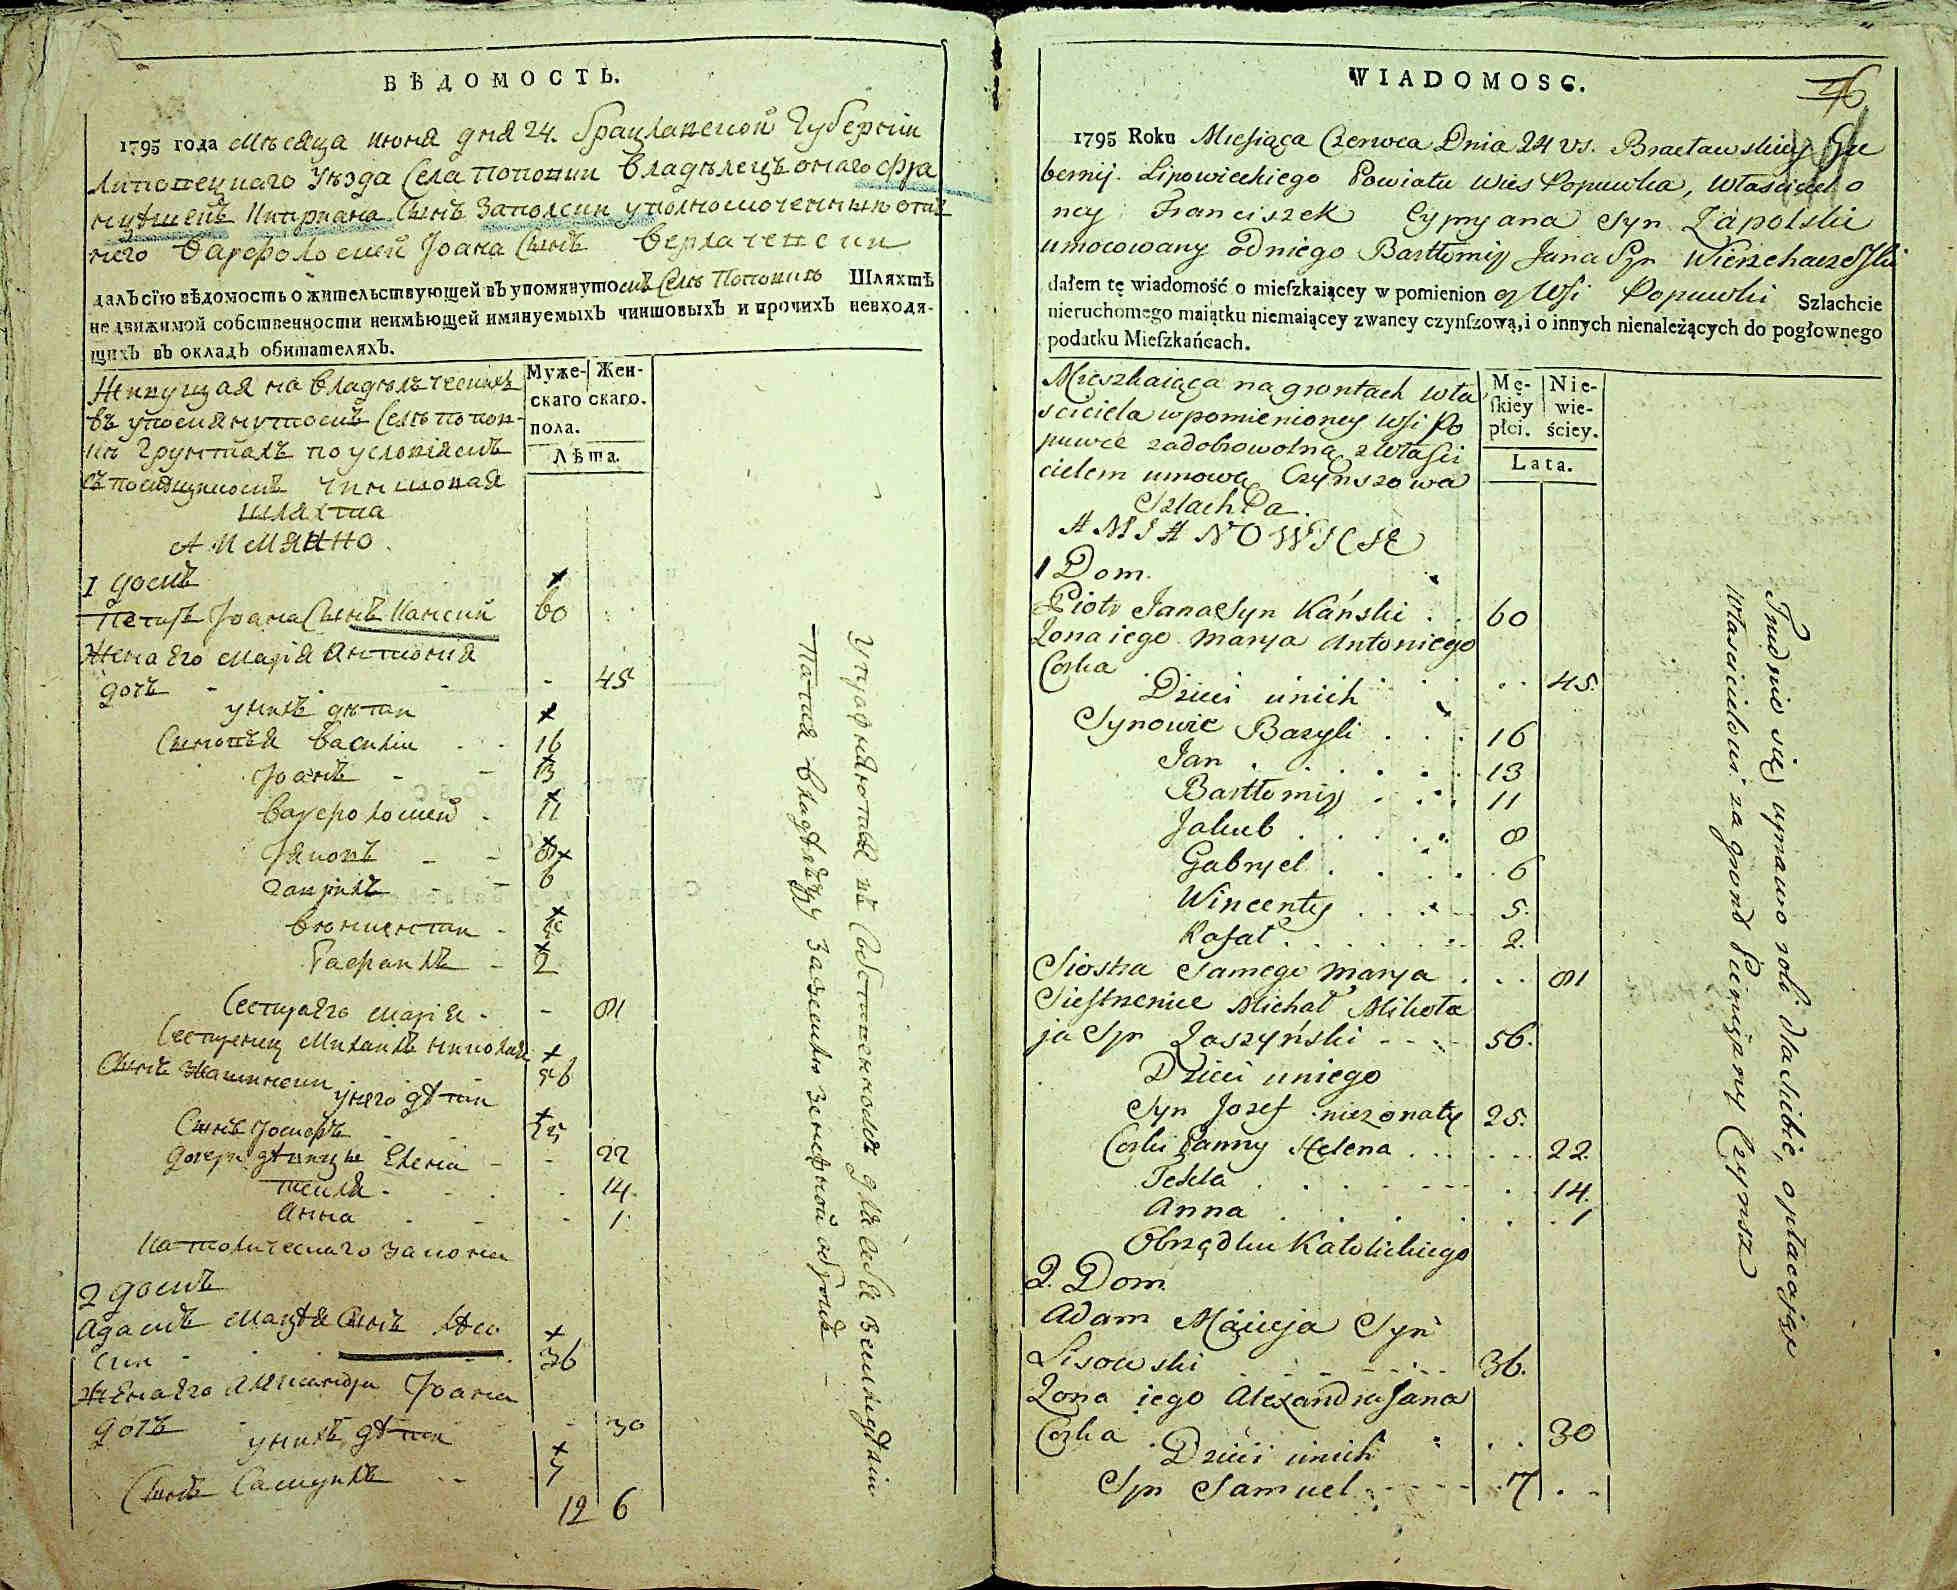 ВѢДОМОСТЬ.
1795 года мѣсяца июня дня 24. Брацлавской Губернїи
Липовецкаго уѣзда Села Поповки владѣлецъ онаго Фра
Киприана Сынъ Запольски уполномоченный от
него Варфоломей Іоана Сынъ
далъ сїю вѣдомость о жительствующей въ упомянутомъ Селѣ Поповкѣ Шляхтѣ
недвижимой собственности неимѣющей имянуемыхъ чиншовыхъ и прочихъ невходя-
щихъ въ окладъ обитателяхъ.
Живущая на владѣлческихъ
въ упомянутомъ Селѣ Попов-
кѣ Грунтахъ по условіямъ
съ чиншовая
шляхта
А ИМЯННО
Муже-
скаго
Жен-
скаго.
пола.
Лѣта.
1 домъ
Петръ Іоана Сынъ Канский 60
Жена Его Марїя Антонїя
дочь - - - 45
у нихъ дѣти
Сыновья Василiй - - 16
Іоанъ - - 13
Варфоломей - 11
Яковъ - - 8
Гаврилъ - 6
Викентий - 5
Рафаилъ - 2
Сестра Его Марїя - - 81
Сестренец Михаилъ Николая
Сынъ 56
у него дѣти
Сынъ Іосифъ - - 25
Дочери дѣвицы Елена - - 22
Текля - - - 14.
Анна - - - 1
Католическаго закона
2 домъ
Адамъ Мацѣя Сынъ Лисо
ски - - - 36
Жена Его Александра Іоана
дочь - - 30
у нихъ дѣти
Сынъ Самуилъ - - 7
12 6
Упражняются въ собственномъ для себя земледѣлїи
платя владѣльцу за землю
WIADOMOSC.
46
1795 Roku Miesiąca Czerwca Dnia 24 vs. Bracławskiey Gu
bernij Lipowieckiego Powiatu Wies Popuwka, Właściciel o
ney Franciszek Cypryana Syn Zapolski
umocowany od niego Bartłomiy Jana Syn
dałem tę wiadomość o mieſzkaiącey w pomienion ey Wsi Popuwki Szlachcie
nieruchomego maiątku niemaiącey zwaney czynſzową, i o innych nienależących do pogłownego
podatku Mieſzkańcach.
Mieszkaiąca na grontach wła
sciciela wpomienioney Wsi Po
puwce zadobrowolną zwłaści
cielem umową Czynszowa
Szlachta.
A MIANOWICIE
Mę-
ſkiey
płci.
Nie-
wie-
ściey.
Lata.
1 Dom.
Piotr Jana Syn Kański . . 60
Zona iego Marya Antoniego
Corka . . . . 45.
Dzieci u nich
Synowie Bazyli . . . 16
Jan . . . . 13
Bartłomiy . . . 11
Jakub . . . . 8
Gabryel . . . . 6
Wincenty . . . 5.
Rafał . . . . 2.
Siostra Samego Marya . . . 81
Siestrzeniec Michał Mikoła
ja Syn Zaszyński - - - 56.
Dzieci u niego
Syn Jozef nieżonaty 25.
Corki Panny Helena . . . 22.
Tekla . . . . 14.
Anna . . . . 1
Obrządku Katolickiego
2. Dom
Adam Macieja Syn
Lisowski . . . . 36.
Zona iego Alexandra Jana
Corka . . . . 30
Dzieci u nich
Syn Samuel . . . 7
Trudnie się uprawo roli dla siebie, opłacając
właścicielowi za gront Pieniężny Czynsz